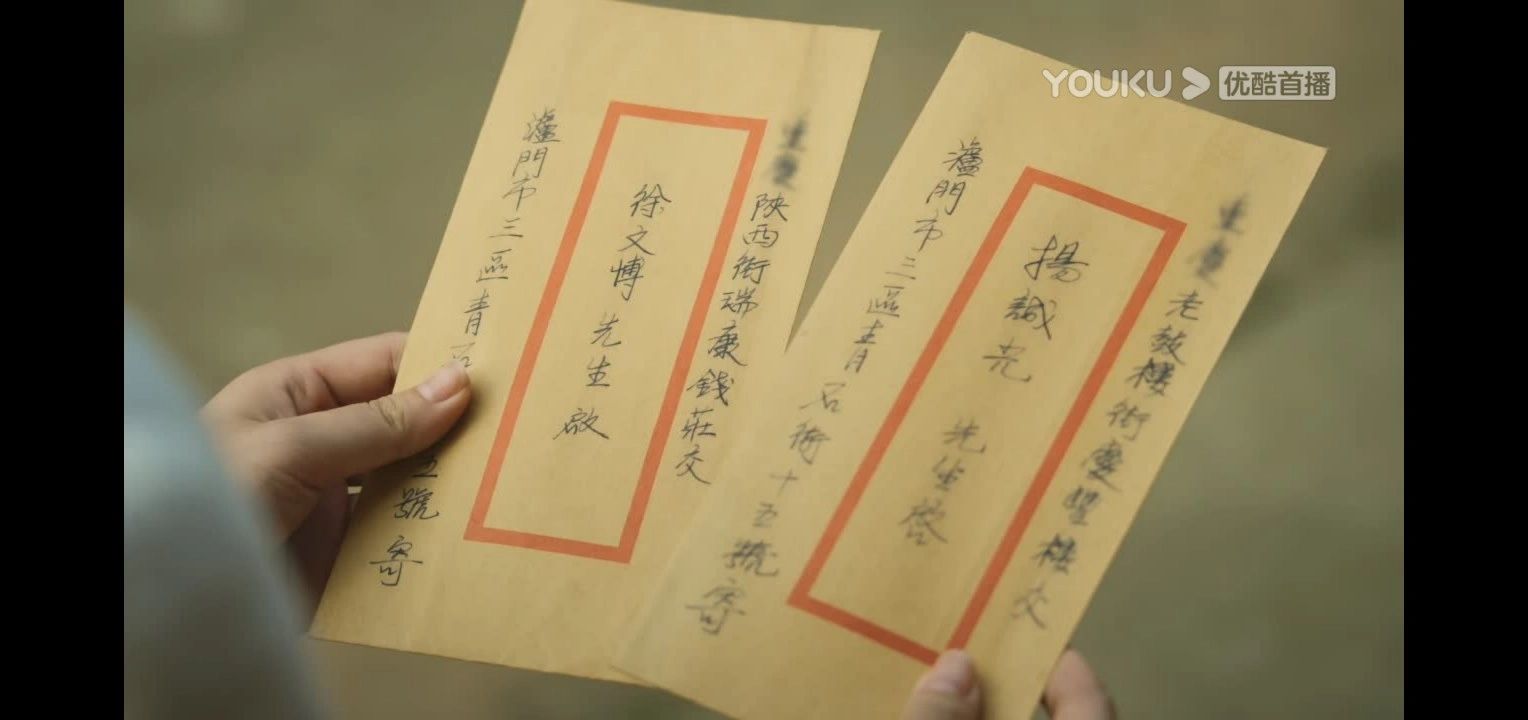 YOUKU 优酷首播
陝西街瑞康錢莊交
徐文博先生啟
瀘門市三區青石
五號寄
老鼓樓街慶樓交
揚誠光 先生啓
瀘門市三區青石街十五號寄